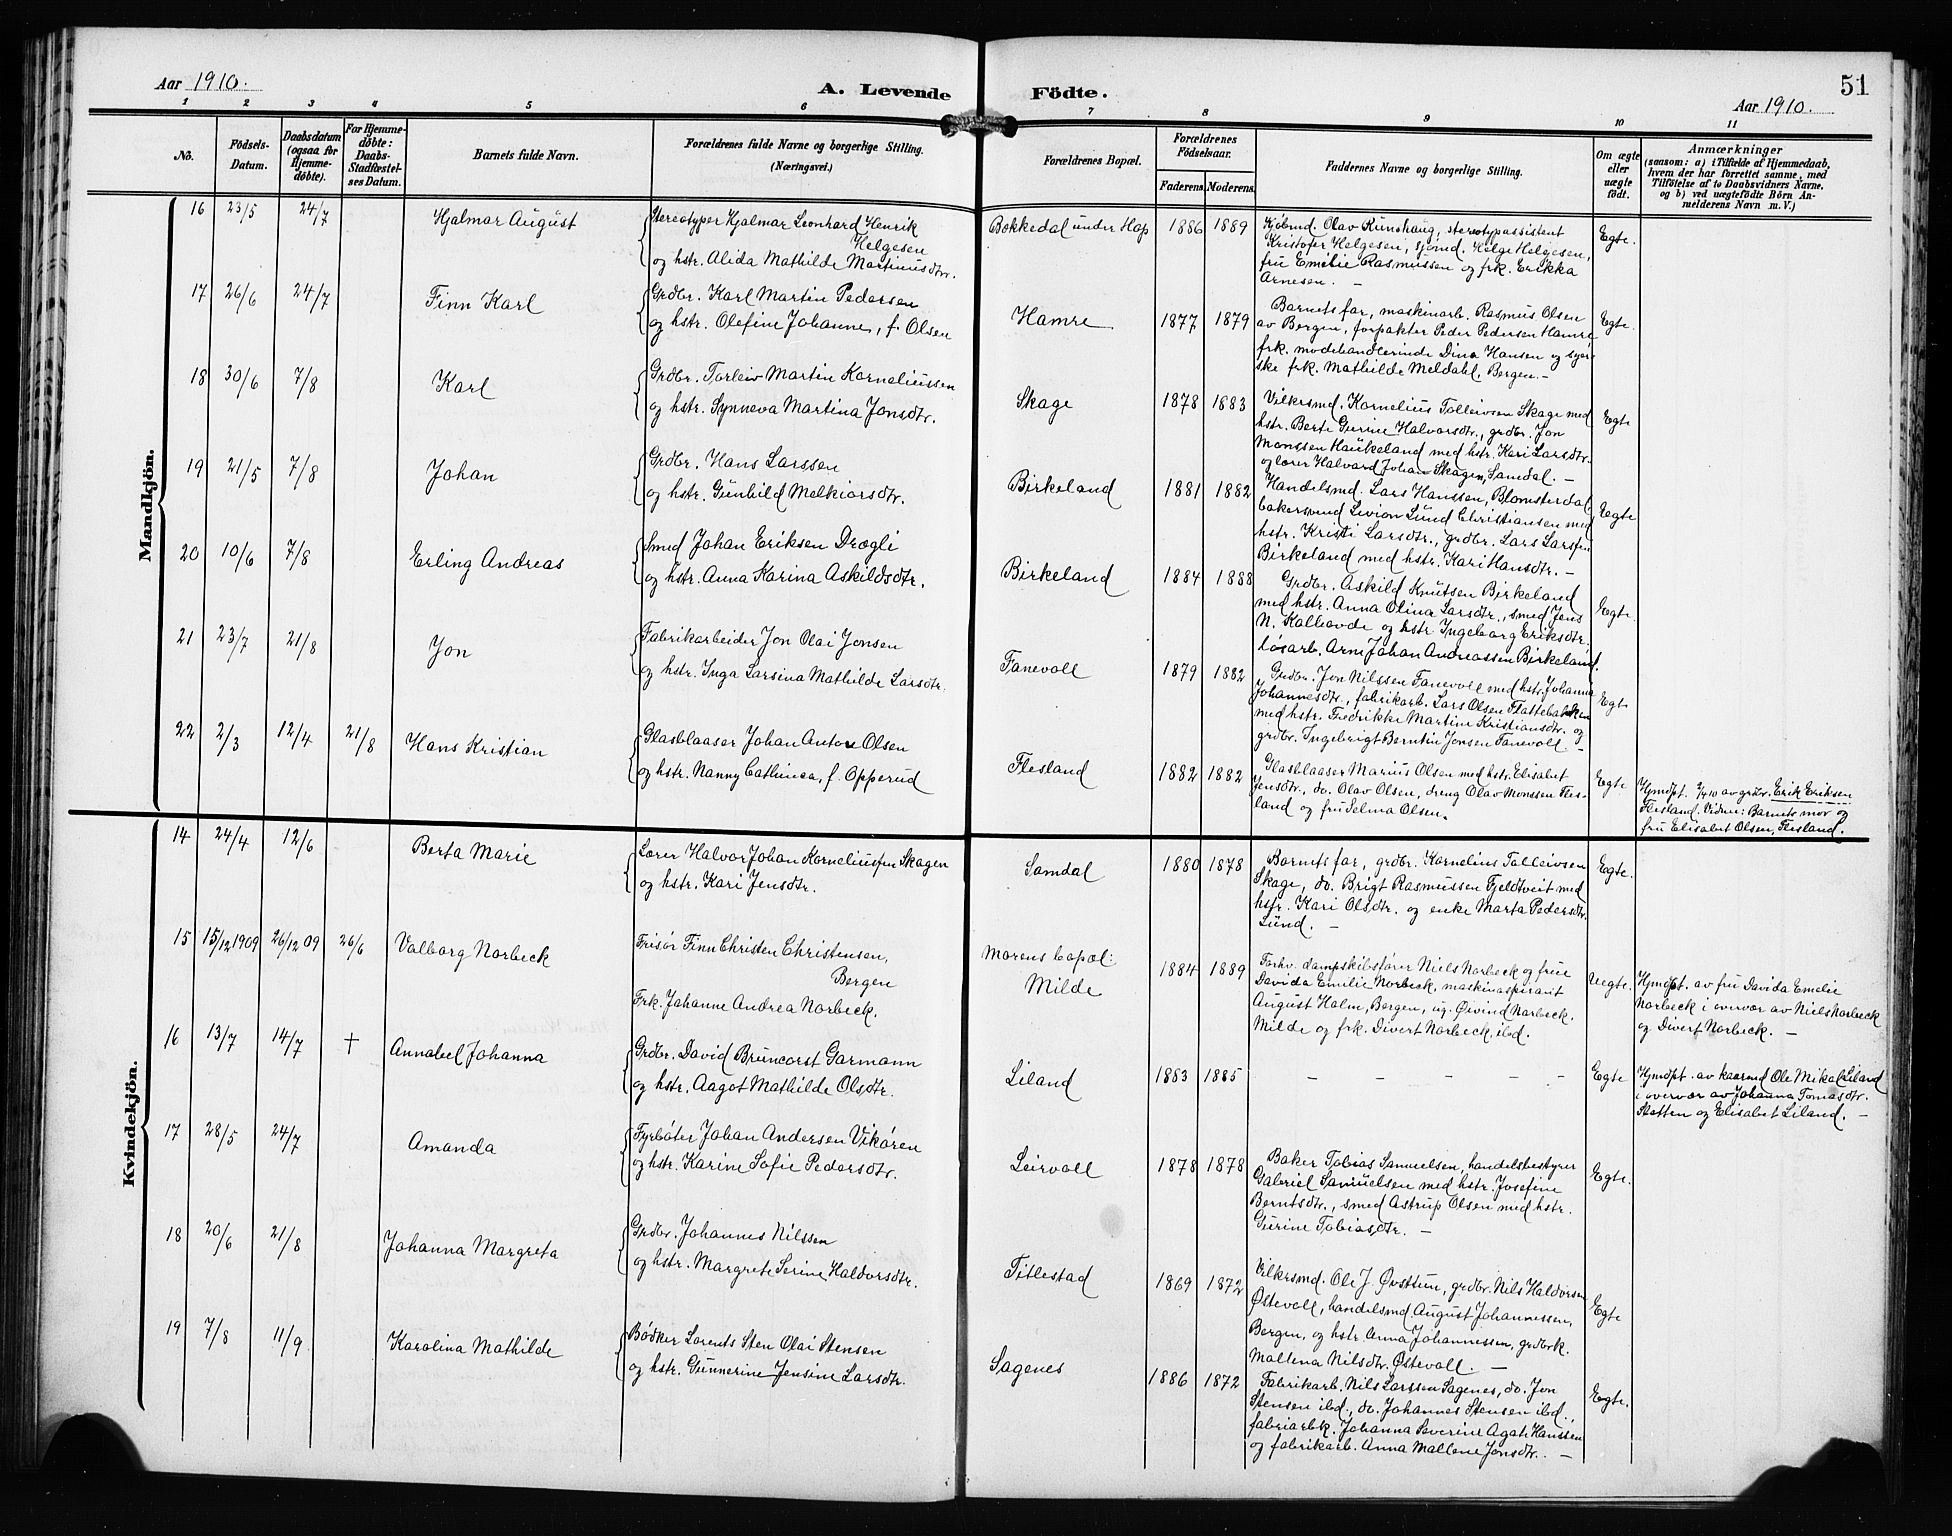 51
Aar 1910.
A. Levende Födte.
Aar 1910.
1 2 3 4 5 6 7 8 9 10 11
No.
Födsels-
Datum.
Daabsdatum
(ogsaa for
Hjemme-
döbte).
For Hjemme-
döbte:
Daabs-
Stadfæstel-
ses Datum.
Barnets fulde Navn.
Forældrenes fulde Navne og borgerlige Stilling.
(Næringsvei.)
Forældrenes Bopæl.
Forældrenes
Födselsaar.
Faderens. Moderens.
Faddernes Navne og borgerlige Stilling.
Om ægte
eller
uægte
født.
Anmærkninger
(saasom: a) i Tilfælde af Hjemmedaab,
hvem der har forrettet samme, med
Tilföielse af to Daabsvidners Navne,
og b) ved uægtefödte Börn An-
melderens Navn m. V.)
Mandkjön.
16 23/5 24/7 Hjalmar August
Stereotyper Hjalmar Leonhard Henrik
Helgesen
og hstr. Alida Mathilde Martinusdtr.
Bokkedal under Hop 1886 1889
Kjøbmd. Olav Runshaug, stereotypassistent
Kristofer Helgesen, sjømd. Helge Helgesen,
fru Emelie Rasmussen og frk. Erikka
Arnesen. —
Egte.
17 26/6 24/7 Finn Karl
Grdbr. Karl Martin Pedersen
og hstr. Olefine Johanne, f. Olsen
Hamre 1877 1879
Barnets far, maskinarb. Rasmus Olsen
av Bergen, forpakter Peder Pedersen Hamre
frk. modehandlerinde Dina Hansen og syer-
ske frk. Mathilde Meldahl, Bergen. —
Egte.
18 30/6 7/8 Karl
Grdbr. Torleiv Martin Korneliussen
og hstr. Synneva Martina Jonsdtr.
Skage 1878 1883
Vilkrsmd. Kornelius Tolleivsen Skage med
hstr. Berte Gurine Halvorsdtr., grdbr. Jon
Monssen Haukeland med hstr. Kari Larsdtr.
og lærer Halvard Johan Skagen, Samdal. —
Egte
19 21/5 7/8 Johan
Grdbr. Hans Larssen
og hstr. Gunhild Melkiorsdtr.
Birkeland 1881 1882
Handelsmd. Lars Hanssen, Blomsterdal,
bakersvend Levion Lund Christiansen med
hstr. Kristi Larsdtr., grdbr. Lars Larssen
Birkeland med hstr. Kari Hansdtr. —
Egte
20 10/6 7/8 Erling Andreas
Smed Johan Eriksen Drægli
og hstr. Anna Karina Askildsdtr.
Birkeland 1884 1888
Grdbr. Askild Knutsen Birkeland
med hstr. Anna Olina Larsdtr., smed Jens
N. Kalhovde og hstr Ingeborg Eriksdtr,
løsarb. Arne Johan Andreassen Birkeland.
Egte.
21 23/7 21/8 Jon
Fabrikarbeider Jon Olai Jonsen
og hstr. Inga Larsina Mathilde Larsdtr.
Fanevoll 1879 1882
Grdbr. Jon Nilssen Fanevoll med hstr. Johanna
Johannesdtr., fabrikarb. Lars Olsen Flattebakken
med hstr. Fredrikke Martine Kristiansdtr. og
grdbr. Ingebrigt Berntin Jonsen Fanevoll. —
Egte
22 2/3 12/4 21/8 Hans Kristian
Glasblaaser Johan Anton Olsen
og hstr. Nanny Cathinca, f. Opperud
Flesland 1882 1882
Glasblaaser Marius Olsen med hstr. Elisabet
Jensdtr., do. Olav Olsen, dreng Olav Monssen Fles-
land og fru Selma Olsen.
Egte
Hjmdpt. 3/4 10 av grdbr. Erik Eriksen
Flesland. Vidner: Barnets mor og
fru Elisabet Olsen, Flesland.
Kvindekjön.
14 24/4 12/6 Berta Marie
Lærer Halvor Johan Korneliussen Skagen
og hstr. Kari Jensdtr.
Samdal 1880 1878
Barnets far, grdbr. Kornelius Tolleivsen
Skage, do. Brigt Rasmussen Fjeldtveit med
hstr. Kari Olsdtr. og enke Marta Pedersdtr.
Lund. —
Egte.
15 15/12 1909 26/12 09 26/6 Valborg Norbeck
Frisør Finn Christen Christensen,
Bergen
Frk. Johanne Andrea Norbeck.
Morens bopæl:
Milde 1884 1889
Forhv. dampskibsfører Niels Norbeck og frue
Davida Emelie Norbeck, maskinaspirant
August Holm, Bergen, ug. Øivind Norbeck,
Milde og frk. Divert Norbeck, ibd.
Uegte.
Hjmdpt. av fru Davida Emelie
Norbeck i overvær av Niels Norbeck
og Divert Norbeck. —
16 13/7 14/7 † Annabel Johanna
Grdbr. David Bruncorst Garmann
og hstr. Aagot Mathilde Olsdtr.
Liland 1883 1885
— — — — —
Egte
Hjmdpt. av kaarmd Ole Mikal Liland
i overvær av Johanna Tomasdtr.
Sletten og Elisabet Liland. —
17 28/5 24/7 Amanda
Fyrbøter Johan Andersen Vikøren
og hstr. Karine Sofie Pedersdtr.
Leirvoll 1878 1878
Baker Tobias Samuelsen, handelsbestyrer
Gabriel Samuelsen med hstr. Josefine
Berntsdtr., smed Astrup Olsen med hstr.
Gurine Tobiasdtr. —
Egte.
18 20/6 21/8 Johanna Margreta
Grdbr. Johannes Nilssen
og hstr. Margrete Serine Haldorsdtr.
Titlestad 1869 1872
Vilkrsmd. Ole J. Øvsttun, grdbr. Nils Haldorsen
Østevoll, handelsmd August Johannessen,
Bergen, og hstr. Anna Johannessen, grdbrk.
Mallena Nilsdtr. Østevoll. —
Egte
19 7/8 11/9 Karolina Mathilde
Bødker Lorents Sten Olai Stensen
og hstr. Gunnerine Jensine Larsdtr.
Sagenes 1886 1872
Fabrikarb. Nils Larssen Sagenes, do. Jon
Stensen ibd., do. Johannes Stensen ibd.,
fabriarbk. Johanna Severine Agate Hanssen
og fabrikarb. Anna Mallene Jonsdtr. —
Egte.